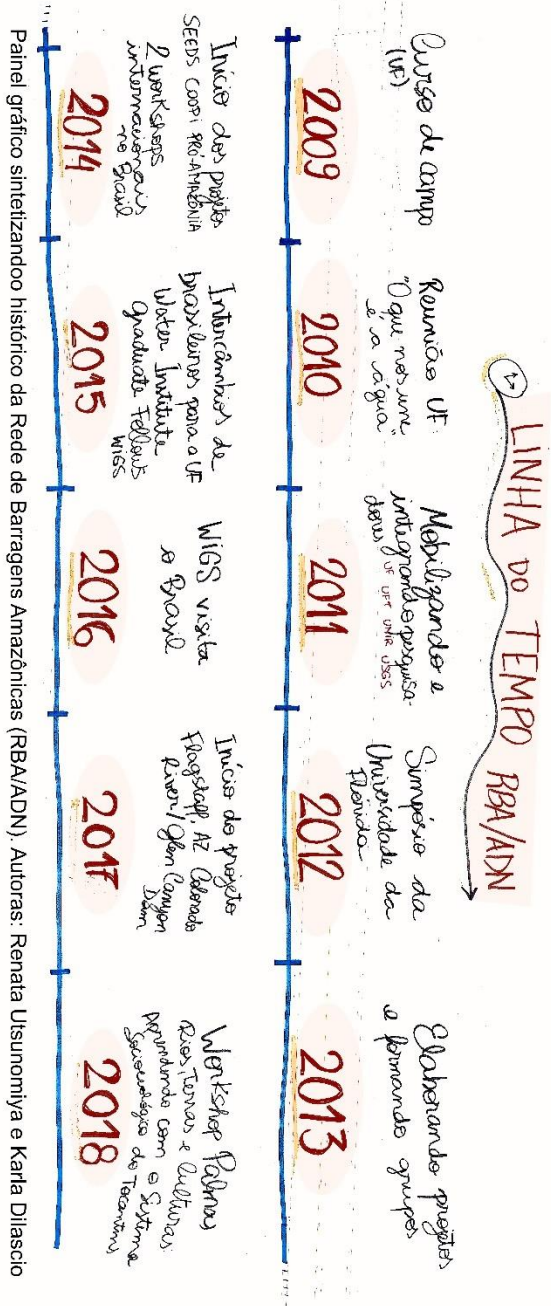 LINHA DO TEMPO RBA/ADN
Curso de campo
(UF)
2009
Reunião UF:
"O que nos une
é a água"
2010
Mobilizando e
integrando pesquisa-
dores UF UFT UNIR USGS
2011
Simpósio da
Universidade da
Flórida
2012
Elaborando projetos
e formando grupos
2013
Início dos projetos
SEEDS COOPI PRÓ-AMAZÔNIA
2 workshops
internacionais
no Brasil
2014
Intercâmbios de
brasileiros para o UF
Water Institute
Graduate Fellows
WIGS
2015
WIGS visita
o Brasil
2016
Início do projeto
Flagstaff, AZ Colorado
River/Glen Canyon
Dam
2017
Workshop Palmas
Rios, Terras e Culturas:
Aprendendo com o Sistema
Socioecológico do Tocantins
2018
Painel gráfico sintetizandoo histórico da Rede de Barragens Amazônicas (RBA/ADN). Autoras: Renata Utsunomiya e Karla Dilascio